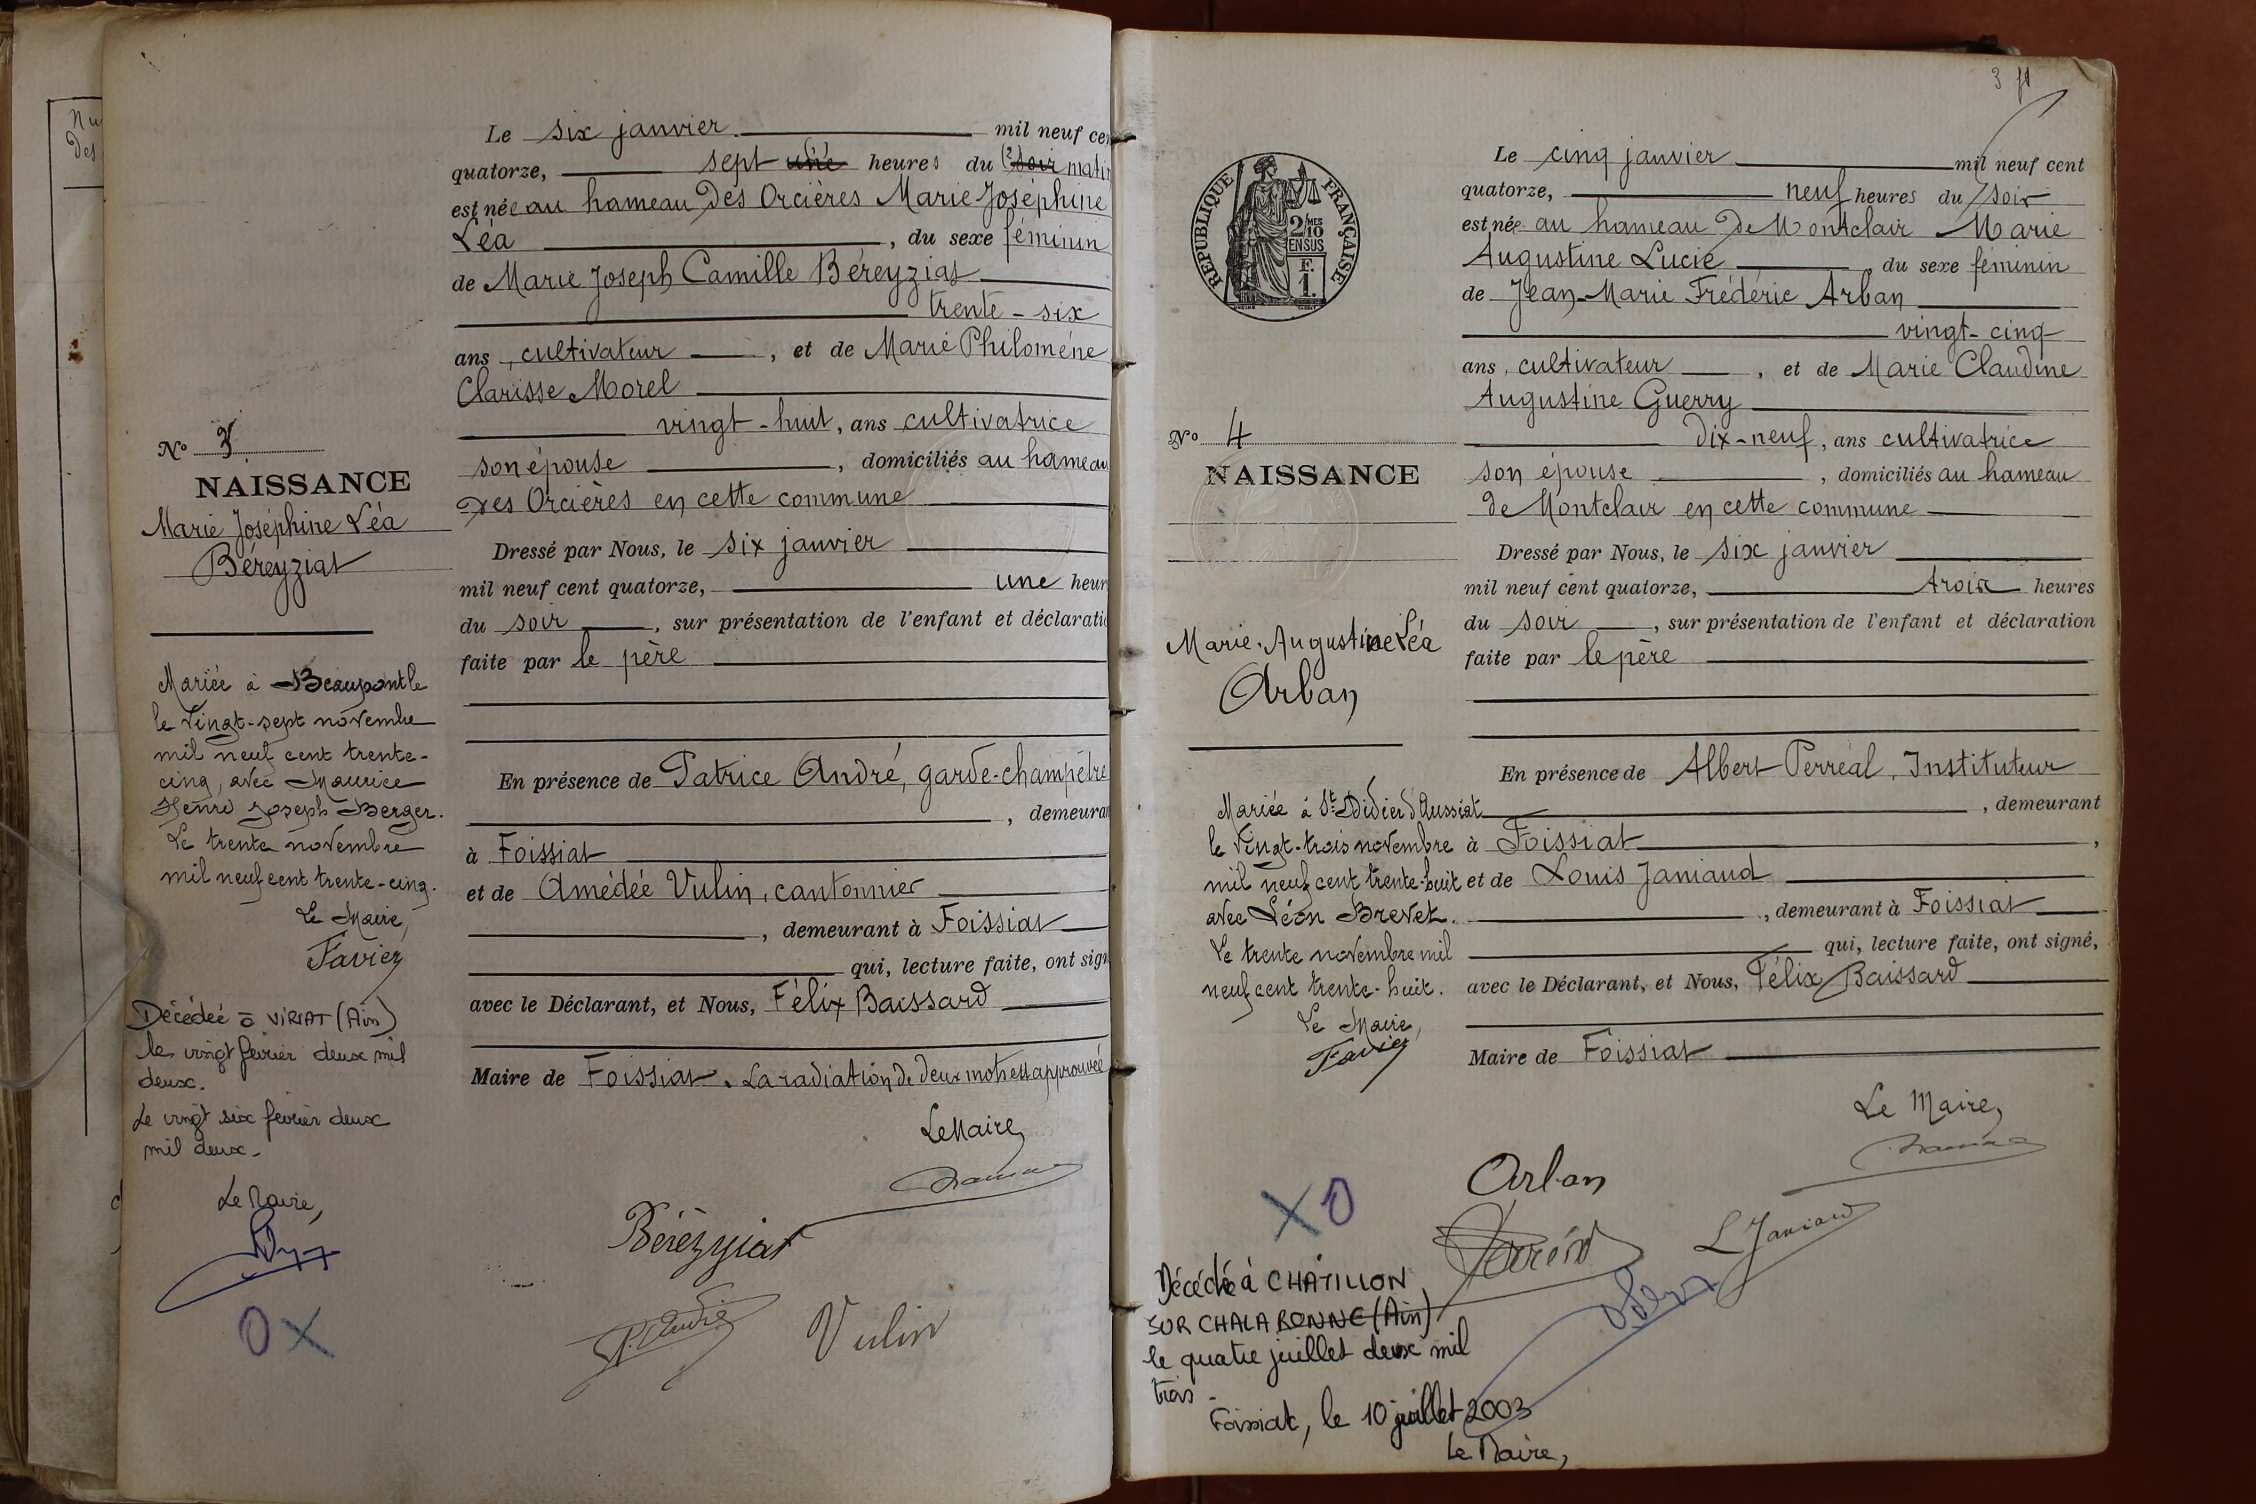 Nu
Des
Le six janvier mil neuf cen
quatorze, sept une heures du soir matin
est née au hameau des Orcières Marie Joséphine
Léa , du sexe féminin
de Marie Joseph Camille Béreyziat
trente-six
ans, cultivateur , et de Marie Philomène
Clarisse Morel
vingt-huit, ans cultivatrice
son épouse , domiciliés au hameau
des Orcières en cette commune
Dressé par Nous, le six janvier
mil neuf cent quatorze, une heur
du soir , sur présentation de l'enfant et déclaratio
faite par le père
En présence de Patrice André, garde-champêtre
, demeuran
à Foissiat
et de Amédée Vulin, cantonnier
, demeurant à Foissiat
qui, lecture faite, ont sign
avec le Déclarant, et Nous, Félix Baissard
Maire de Foissiat. La radiation de deux mots est approuvée
Le Maire,
Béréyziat
P. André
Vulin
No 3
NAISSANCE
Marie Joséphine Léa
Béreyziat
Mariée à Beaupont le
le vingt-sept novembre
mil neuf cent trente-
cinq, avec Maurice
Henri Joseph Berger.
Le trente novembre
mil neuf cent trente-cinq.
Le Maire,
Favier
Décédée à VIRIAT (Ain)
le vingt février deux mil
deux.
Le vingt six février deux
mil deux-
Le Maire,
0 X
3
REPUBLIQUE FRANÇAISE
2/10 MES
EN SUS
F.
1.
Le cinq janvier mil neuf cent
quatorze, neuf heures du soir
est née au hameau de Montclair Marie
Augustine Lucie , du sexe féminin
de Jean-Marie Frédéric Arban
vingt-cinq
ans, cultivateur , et de Marie Claudine
Augustine Guerry
dix-neuf, ans cultivatrice
son épouse , domiciliés au hameau
de Montclair en cette commune
Dressé par Nous, le six janvier
mil neuf cent quatorze, trois heures
du soir , sur présentation de l'enfant et déclaration
faite par le père
En présence de Albert Perréal, Instituteur
, demeurant
à Foissiat ,
et de Louis Janiaud
, demeurant à Foissiat
qui, lecture faite, ont signé,
avec le Déclarant, et Nous, Félix Baissard
Maire de Foissiat
Le Maire,
Arban
Perréal
L Janiaud
No 4
NAISSANCE
Marie. Augustine Léa
Arban
Mariée à St Didier d'Aussiat
le vingt-trois novembre
mil neuf cent trente-huit
avec Léon Brevet.
Le trente novembre mil
neuf cent trente-huit.
Le Maire,
Favier
X 0
Décédée à CHATILLON
SUR CHALARONNE (Ain)
le quatre juillet deux mil
trois -
Foissiat, le 10 juillet 2003
Le Maire,